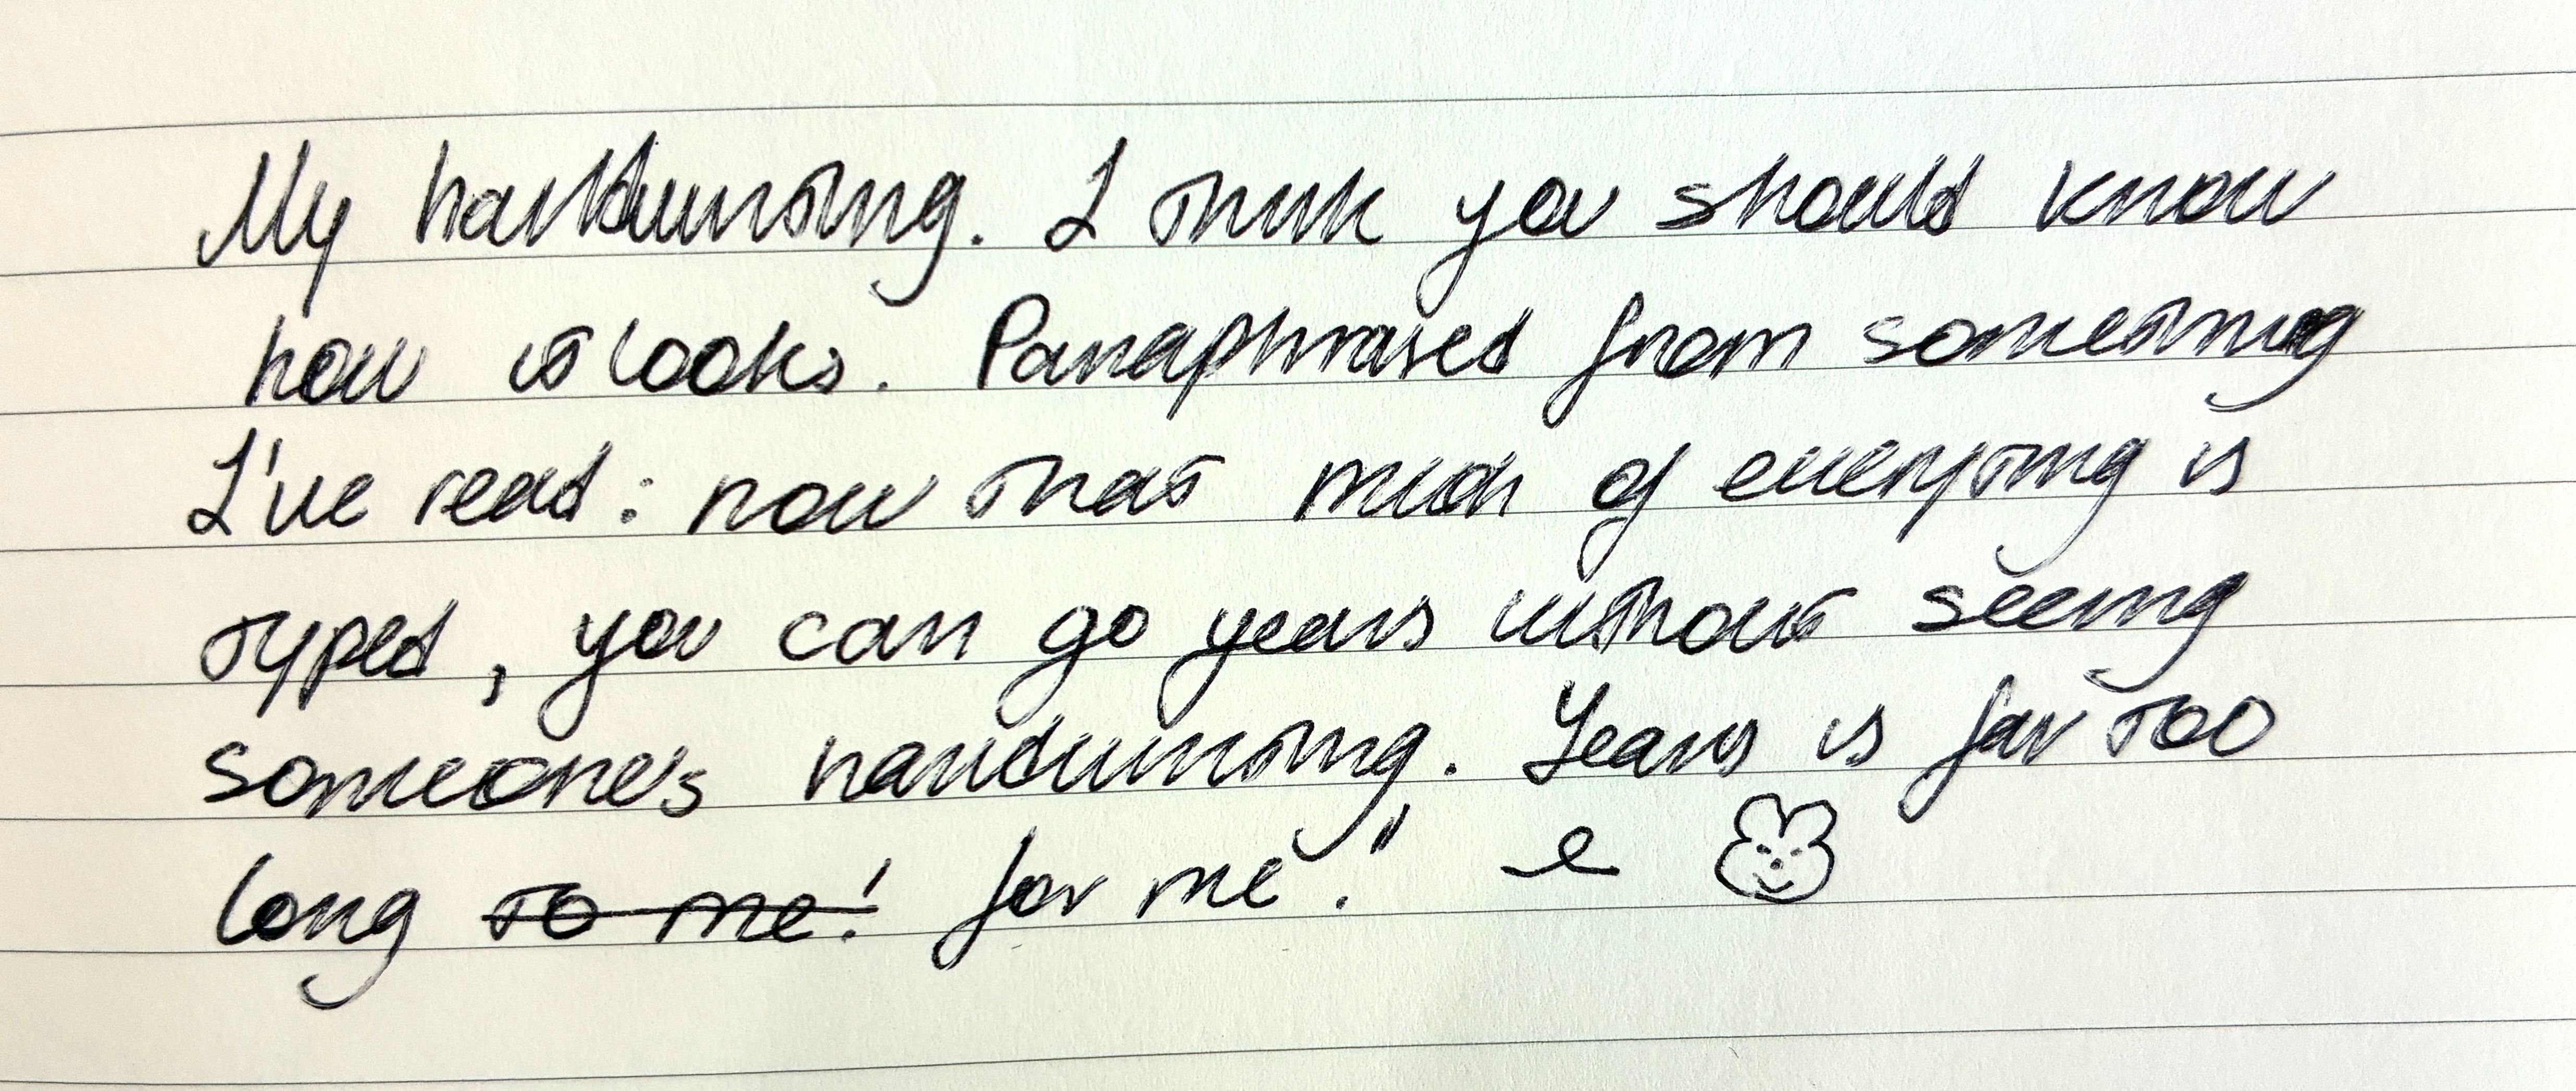 My handwriting. I think you should know
how it looks. Paraphrased from something
I've read: now that much of everything is
typed, you can go years without seeing
someone's handwriting. Years is far too
long to me! for me! e